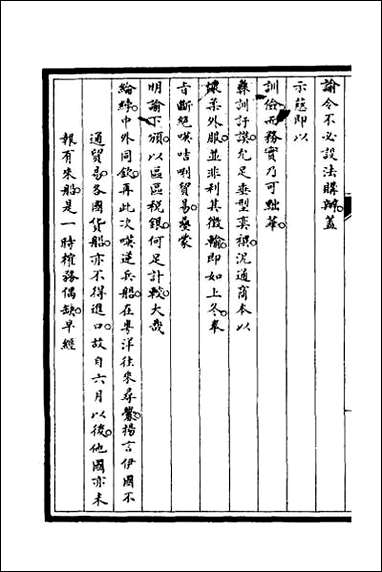 諭令不必設法購辦蓋
示範即以
訓儉而務實乃可黜華
彝訓訏謨允足垂型奕禩況通商本以
懷柔外服並非利其徵輸即如上冬奉
旨斷絕𠸄咭唎貿易疊蒙
明諭下頒以區區稅銀何足計較大哉
綸綍中外同欽再此次𠸄逆兵船在粵洋往來尋釁揚言伊國不
通貿易各國貨船亦不得進口故自六月以後他國亦未
報有來船是一時榷務偶缺早經